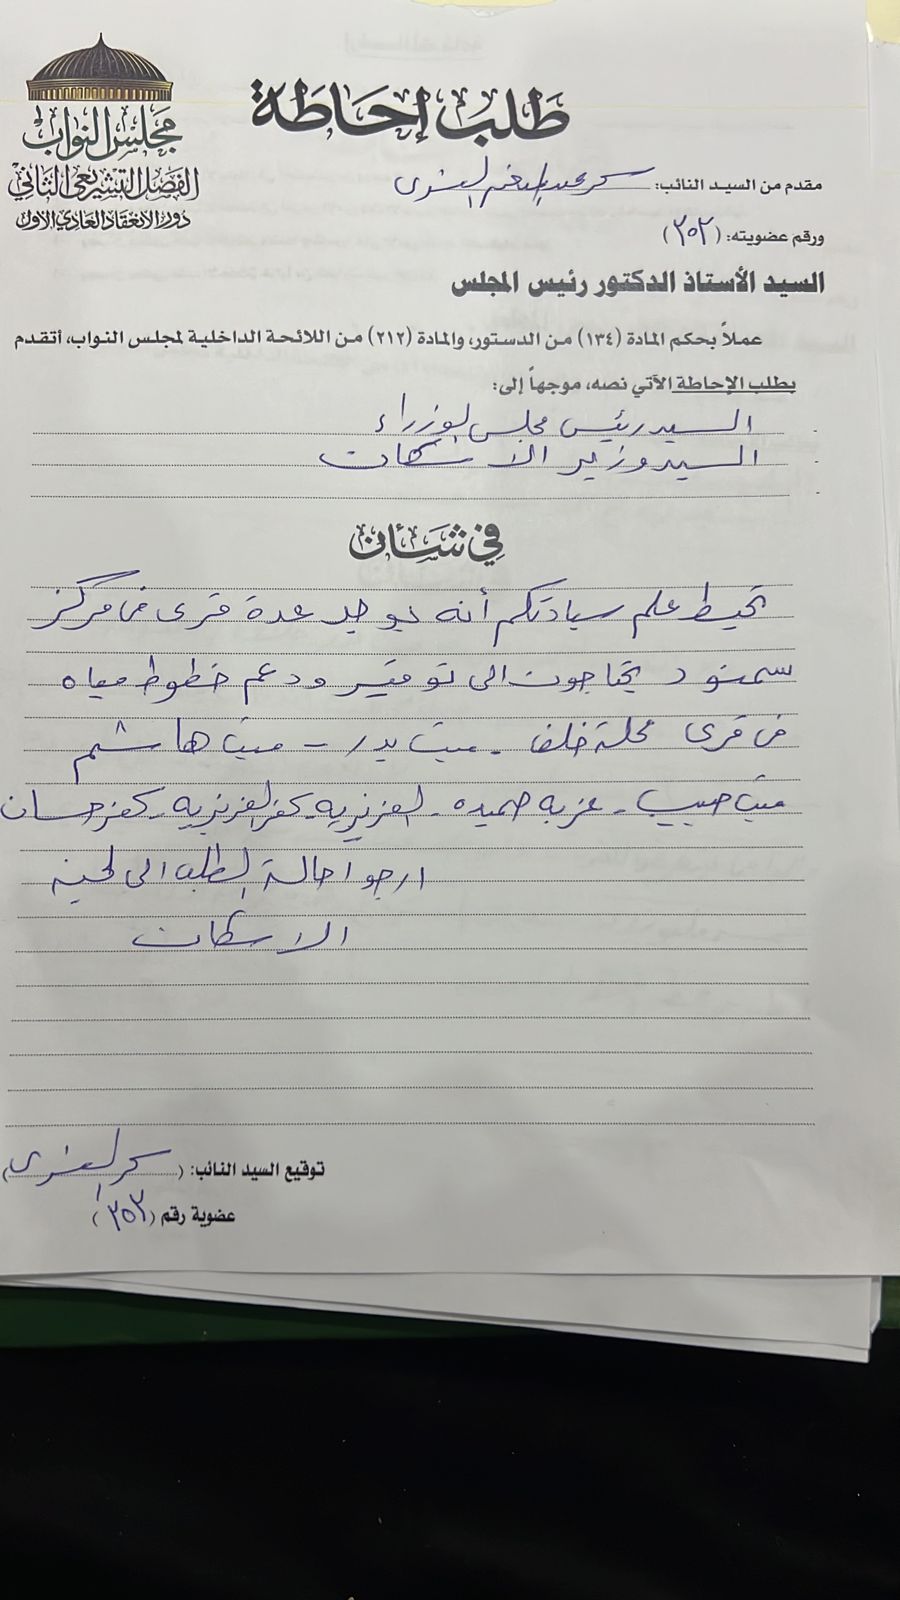 طلب إحاطة
مجلس النواب
الفصل التشريعي الثاني
دور الانعقاد العادي الأول
مقدم من السيد النائب: سحر عبد المنعم
ورقم عضويته: (٣٥٢)
السيد الأستاذ الدكتور رئيس المجلس
عملاً بحكم المادة (١٣٤) من الدستور، والمادة (٢١٢) من اللائحة الداخلية لمجلس النواب، أتقدم
بطلب الإحاطة الآتي نصه، موجهاً إلى:
السيد رئيس مجلس الوزراء
السيد وزير الاسكان
في شأن
نحيط علم سيادتكم أنه يوجد عدة قرى في مركز
سمنود يحتاجون الى توفير ودعم خطوط مياه
في قرى محلة خلف - ميت بدر - ميت هاشم
ميت حبيب - عزبه حميده - العزيزيه - كفر العزيزيه - كفر حسان
ارجو احالة الطلب الى لجنه
الاسكان
توقيع السيد النائب: (سحر)
عضوية رقم (٣٥٢)